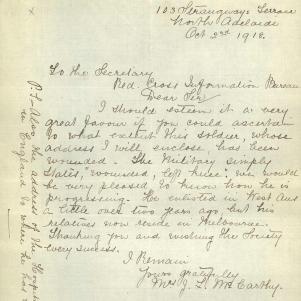 103 Strangways Terrace
North Adelaide
Oct 23rd 1918.
To the Secretary
Red. Cross Information Bureau
Dear Sir
I should esteem it a very
great favour if you could ascertain
to what extent this soldier, whose
address I will enclose, has been
wounded. The Military simply
states, "wounded, left knee", we would
be very pleased to know how he is
progressing. He enlisted in West Aus
a little over two years ago, but his
relatives now reside in Melbourne.
Thanking you and wishing the Society
every success.
I Remain
Yours gratefully
Mrs J. L. McCarthy.
P.S. Also, the address of the Hospital
in England is where he has